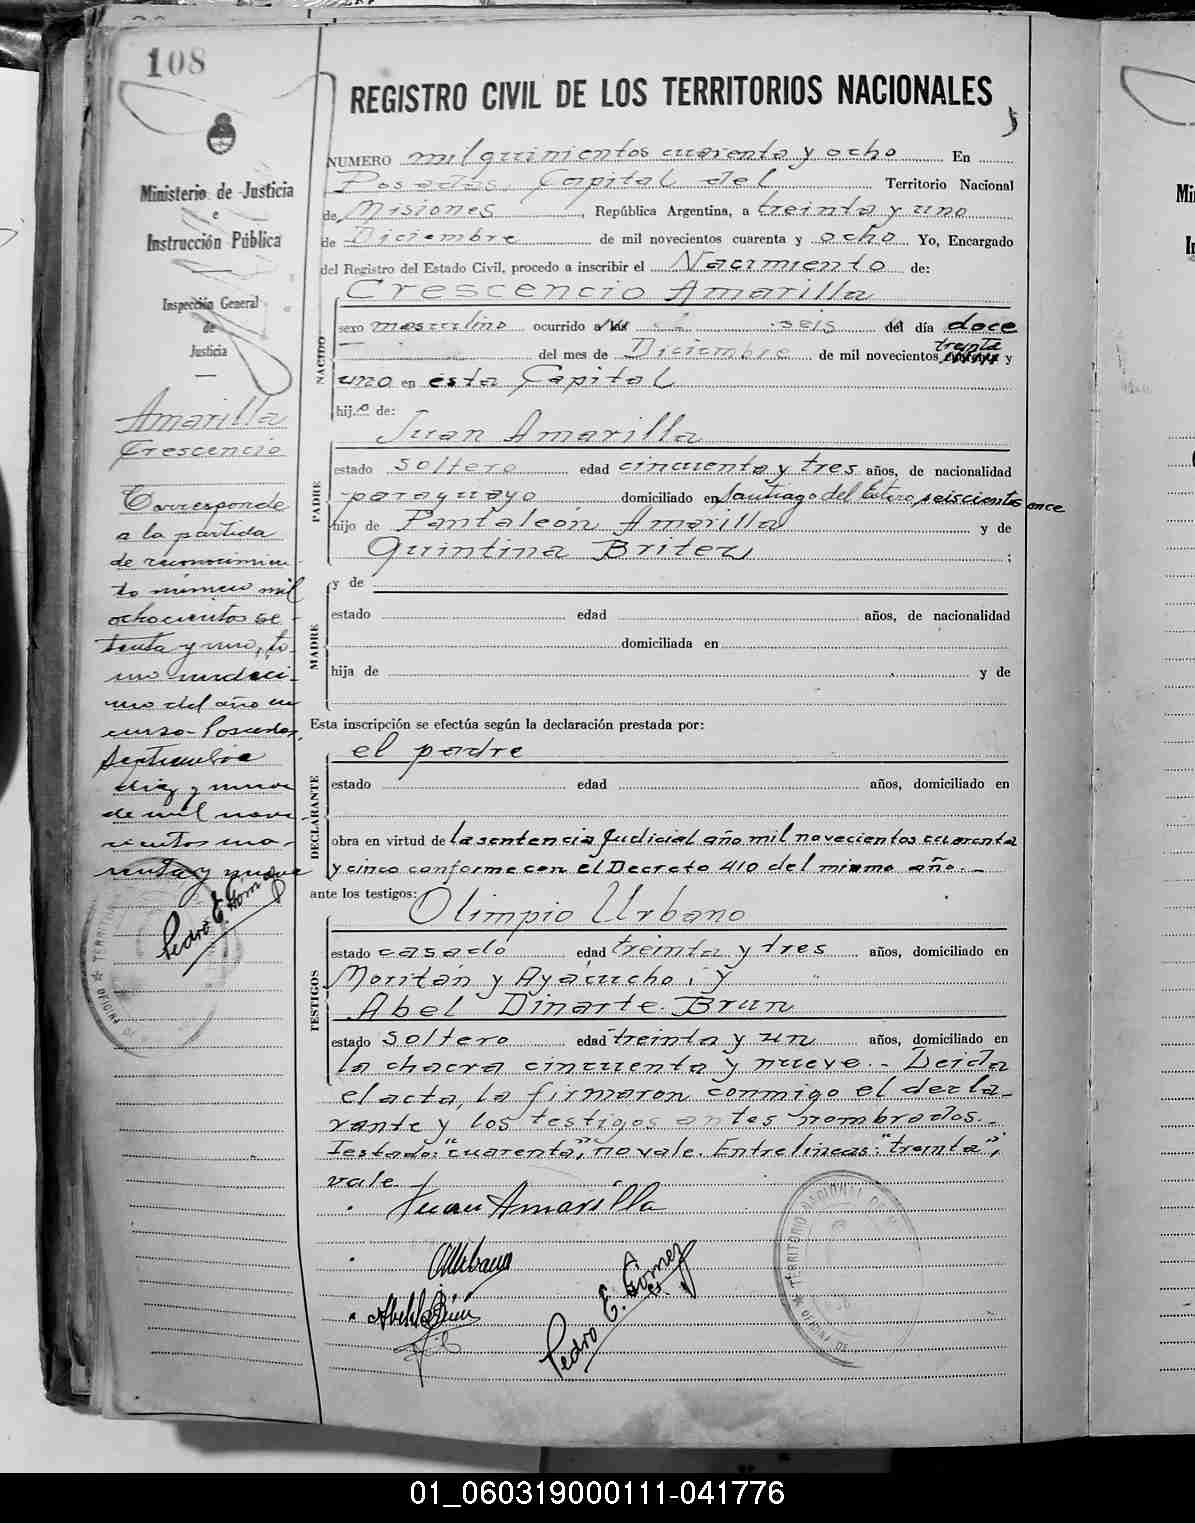 108
REGISTRO CIVIL DE LOS TERRITORIOS NACIONALES
Ministerio de Justicia
e
Instrucción Pública
Inspección General
de
Justicia
Amarilla
Crescencio
Corresponde
a la partida
de reconocimien
to número mil
ochocientos se
tenta y uno, to-
mo undéci-
mo del año en
curso - Posadas,
Septiembre
diez y nueve
de mil nove
cientos cua-
renta y nueve
Pedro E. Gómez
NUMERO mil quinientos cuarenta y ocho En
Posadas, Capital del Territorio Nacional
de Misiones, República Argentina, a treinta y uno
de Diciembre de mil novecientos cuarenta y ocho Yo, Encargado
del Registro del Estado Civil, procedo a inscribir el Nacimiento de:
NACIDO
Crescencio Amarilla
sexo masculino ocurrido a las seis del día doce
treinta
del mes de Diciembre de mil novecientos cuarenta y
uno en esta Capital
hijo de:
PADRE
Juan Amarilla
estado soltero edad cincuenta y tres años, de nacionalidad
paraguayo domiciliado en Santiago del Estero seiscientos once
hijo de Pantaleón Amarilla y de
Quintina Britez ;
MADRE
y de
estado edad años, de nacionalidad
domiciliada en
hija de y de
Esta inscripción se efectúa según la declaración prestada por:
DECLARANTE
el padre
estado edad años, domiciliado en
obra en virtud de la sentencia Judicial año mil novecientos cuarenta
y cinco conforme con el Decreto 410 del mismo año.-
ante los testigos:
TESTIGOS
Olimpio Urbano
estado casado edad treinta y tres años, domiciliado en
Moritán y Ayacucho; y
Abel Dinarte Brun
estado soltero edad treinta y un años, domiciliado en
la chacra cincuenta y nueve.- Leida
el acta, la firmaron conmigo el decla-
rante y los testigos antes nombrados.-
Testado: "cuarenta", no vale. Entrelineas: "treinta";
vale.-
Juan Amarilla
OUrbano
Pedro E. Gómez
TERRITORIO NACIONAL
01_060319000111-041776